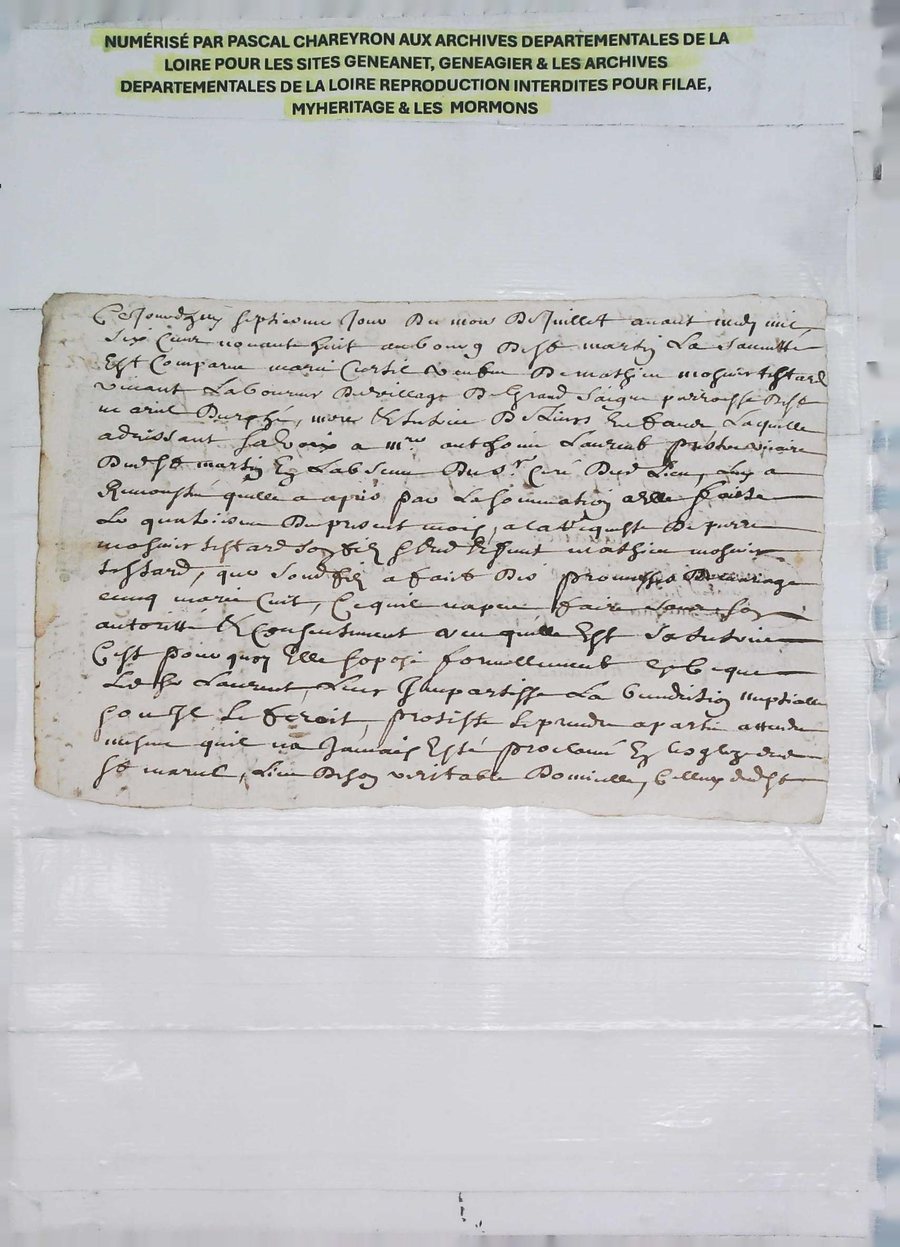 NUMÉRISÉ PAR PASCAL CHAREYRON AUX ARCHIVES DEPARTEMENTALES DE LA
LOIRE POUR LES SITES GENEANET, GENEAGIER & LES ARCHIVES
DEPARTEMENTALES DE LA LOIRE REPRODUCTION INTERDITES POUR FILAE,
MYHERITAGE & LES MORMONS
Cejourdhuy septiesme jour du mois de Juillet avant midy mil
six cens nonante huit au bourg de St martin La sauvetté
Est Comparue marie veufve de mathieu mosnier testard
vivant Laboureur du village de Grand parroisse de St
marcel Durphé, mere & tutrice de Leurs Enfans Laquelle
adressant sa voix a mre anthoine Laurent prestre vicaire
dud St martin En Labsence du Sr Curé dud Lieu, Luy a
Remonstré quelle a apris par La sommation a elle faite
Le quatriesme du present mois, a la Requeste de pierre
mosnier testard son fils & dud deffunt mathieu mosnier
testard, que sond fils a faict des promesses de mariage
avecq marie Cuit, Ce quil na peu faire sans son
autoritté & Consentement avenu quelle Est sa tutrice
Cest pourquoy Elle sopose formellement a ce que
Led Sr Laurent Leur Impartisse La benediction nuptialle
ou sil Le feroit, proteste de prendre a partie attendu
mesme quil na Jamais Esté proclamé En Leglize dud
St marcel, Lieu de son veritable Domicille, dud St